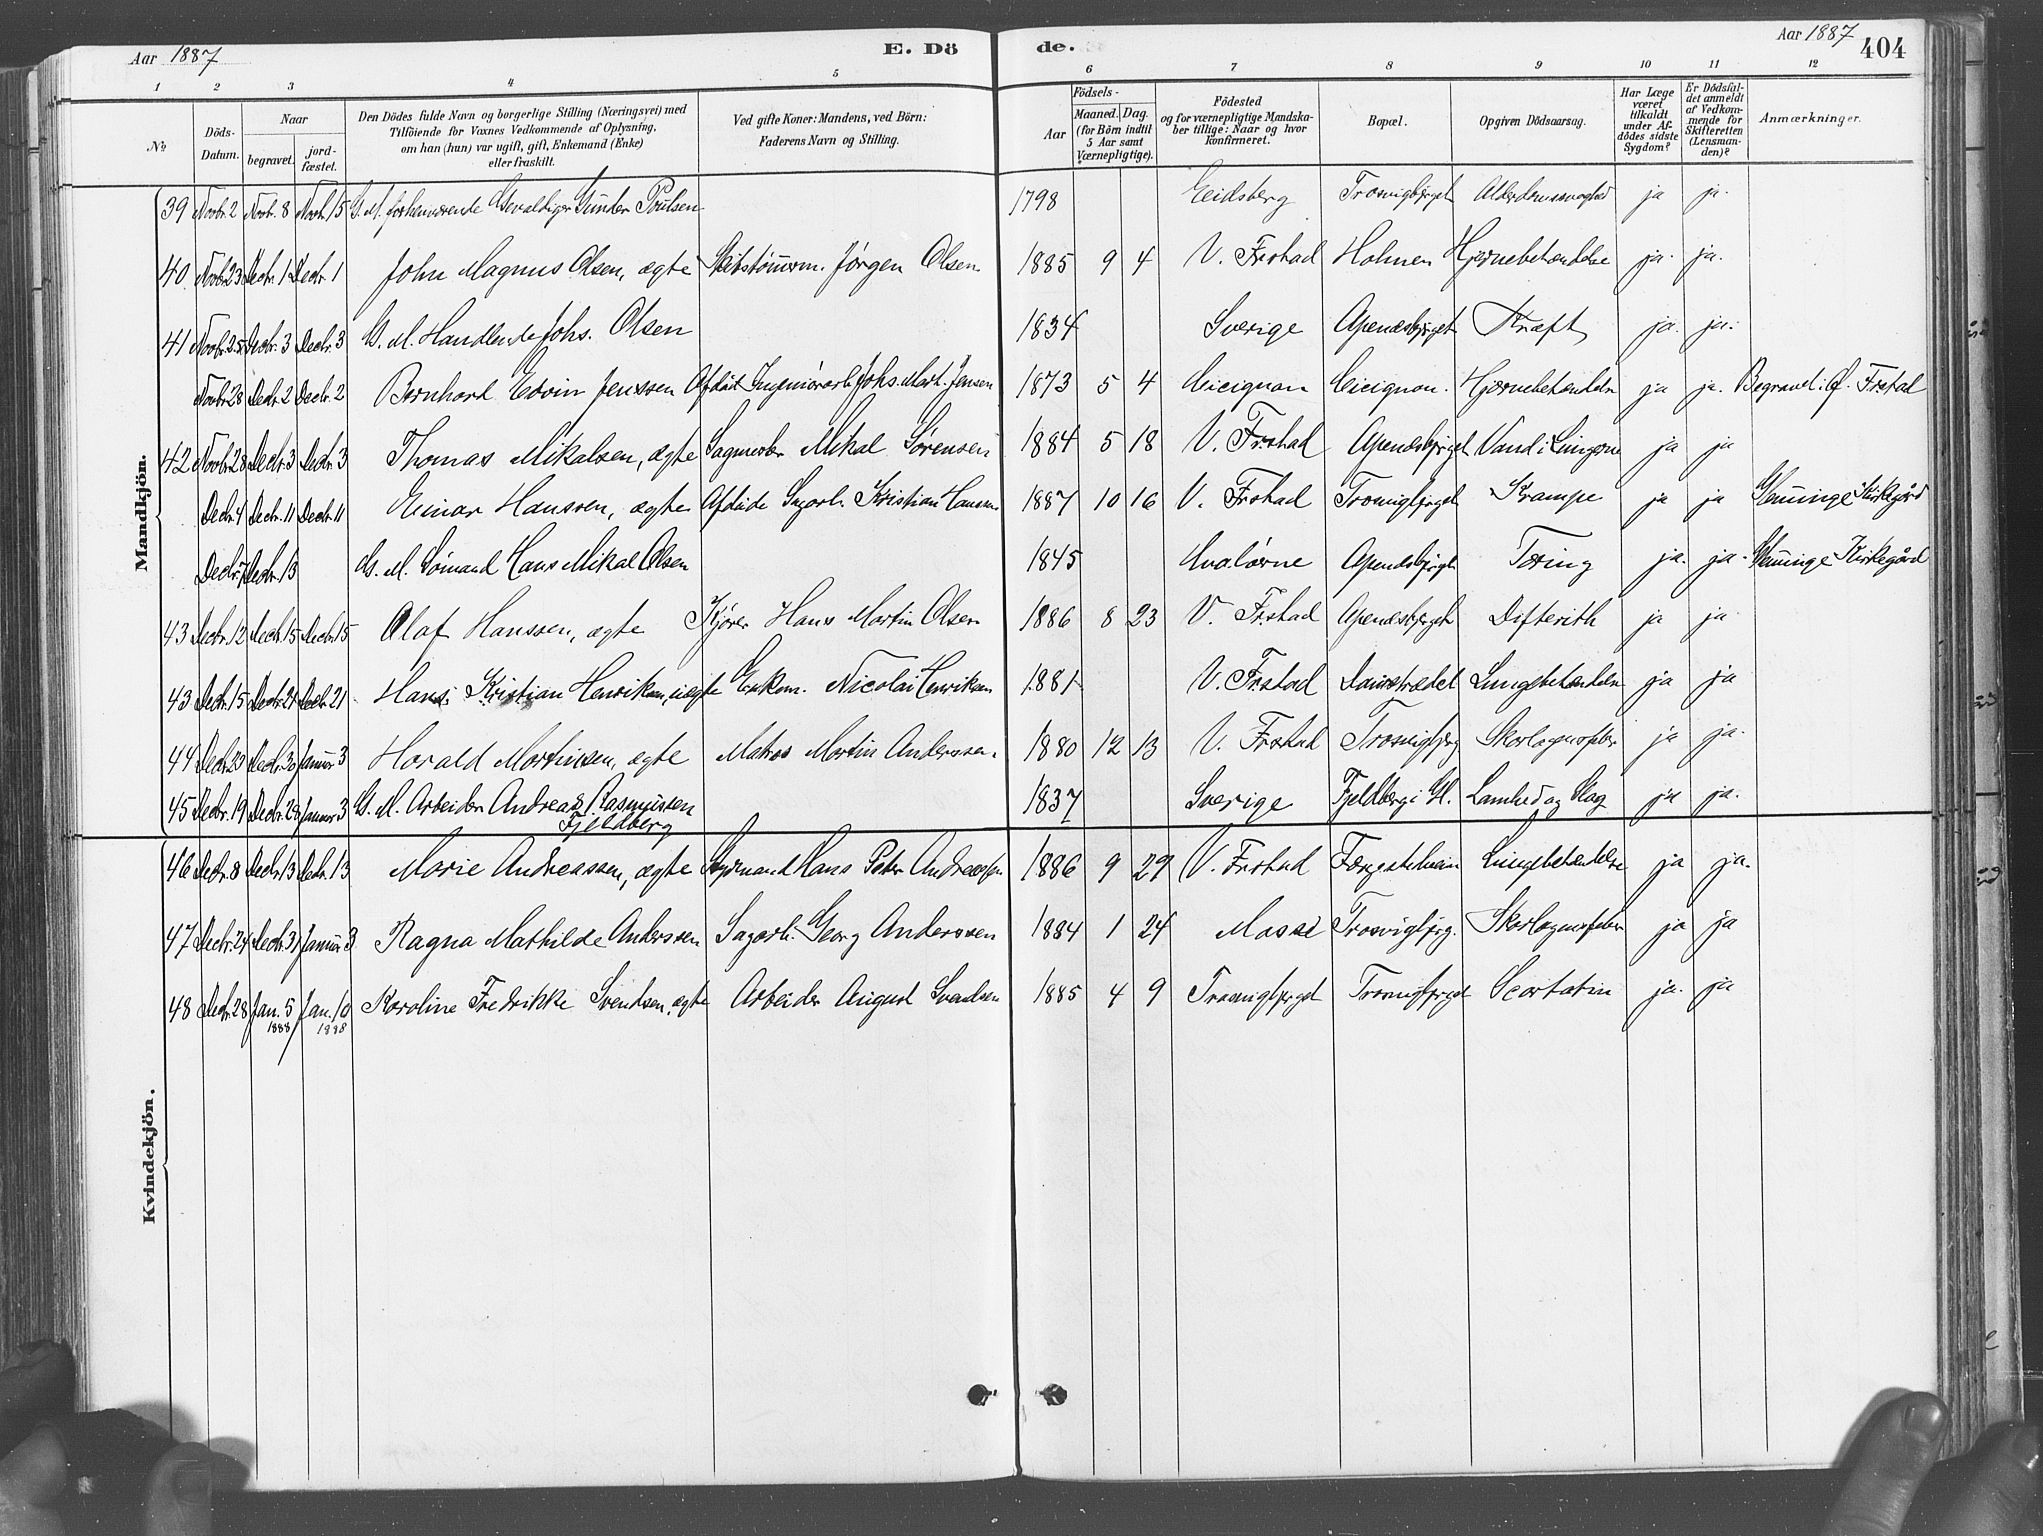 Aar 1887
E. Dö
de.
Aar 1887
404
1 2 3 4 5 6 7 8 9 10 11 12
№
Döds-Datum.
Naar
begravet.
jord-fæstet.
Den Dödes fulde Navn og borgerlige Stilling (Næringsvei) med
Tilföiende for Voxnes Vedkommende af Oplysning,
om han (hun) var ugift, gift, Enkemand (Enke)
eller fraskilt.
Ved gifte Koner: Mandens, ved Börn:
Faderens Navn og Stilling.
Födsels-
Aar
Maaned. Dag.
(for Börn indtil
5 Aar samt
Værnepligtige).
Födested
og for værnepligtige Mandska-
ber tillige: Naar og hvor
konfirmeret.
Bopæl.
Opgiven Dödsaarsag.
Har Læge
været
tilkaldt
under Af-
dödes sidste
Sygdom?
Er Dödsfal-
det anmeldt
af Vedkom-
mende for
Skifteretten
(Lensman-
den)?
Anmærkninger.
Mandkjön.
39 Novbr. 2 Novbr. 8 Novbr. 15 G. M. forhenværende Gevaldiger Gunder Poulsen 1798 Eidsberg Trosvigbjerget Alderdomssvaghed ja ja.
40 Novbr. 23 Decbr. 1 Decbr. 1 John Magnus Olsen, ægte Skibstømmerm. Jørgen Olsen 1885 9 4 V. Frstad Holmen Hjernebetændelse ja. ja.
41 Novbr. 25 Decbr. 3 Decbr. 3 G. M. Handlende Johs. Olsen 1834 Sverige Apenæsbjerget Kræft ja. ja.
Novbr. 28 Decbr. 2 Decbr. 2 Bernhard Edvin Jenssen Afdød Johs. Mart. Jensen 1873 5 4 Cicignon Cicignon. Hjernebetændelse ja ja. Begravet i Ø. Frstad
42 Novbr. 28 Decbr. 3 Decbr. 3 Thomas Mikalsen, ægte Sagmester Mikal Sørensen 1884 5 18 V. Frstad Apenæsbjerget Vand i Lungerne ja ja
Decbr. 4 Decbr. 11 Decbr. 11 Einar Hanssen, ægte Afdøde Sagarb. Kristian Hanssen 1887 10 16 V. Frstad Trosvigbjerget Krampe ja ja Glemminge Kirkegård
Decbr. 7 Decbr. 13 G. M. Sømand Hans Mikal Olsen 1845 Hvaløerne Apenæsbjerget Tæring ja. ja. Glemminge Kirkegård
43 Decbr. 12 Decbr. 15 Decbr. 15 Olaf Hanssen, ægte Kjører Hans Martin Olsen 1886 8 23 V. Frstad Apenæsbjerget Difterith ja ja
43 Decbr. 15 Decbr. 21 Decbr. 21 Hans Kristian Henriksen, uægte Enkem. Nicolai Henriksen 1881 V. Frstad Damstrædet Lungebetændelse ja ja
44 Decbr. 20 Decbr. 30 Januar 3 Harald Martinsen, ægte Matros Martin Anderssen. 1880 12 13 V. Frstad Trosvigbjerg Skarlagensfeber ja ja.
45 Decbr. 19 Decbr. 28 Januar 3 G. M. Arbeider Andreas Rasmussen
Fjeldberg 1837 Sverige Fjeldberg i Gl. Lamhed og Slag ja ja.
Kvindekjön.
46 Decbr. 8 Decbr. 13 Decbr. 13 Marie Andreassen, ægte Styrmand Hans Peter Andreassen 1886 9 29 V. Frstad Lungebetændelse ja ja.
47 Decbr. 24 Decbr. 31 Januar 3 Ragna Mathilde Anderssen Sagarb. Georg Anderssen 1884 1 24 Mosse Trosvigbjerg. Skarlagensfeber ja ja
48 Decbr. 28 Jan. 5 1888 Jan. 10 1888 Karoline Fredrikke Svendsen, ægte Arbeider August Svendsen 1885 4 9 Trosvigbjerget Trosvigbjerget Scarlatin ja. ja